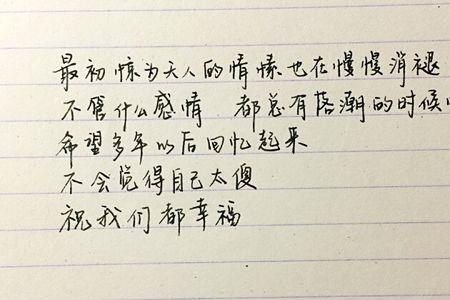 最初惊为天人的情愫也在慢慢消褪
不管什么感情 都总有落潮的时候
希望多年以后回忆起来
不会觉得自己太傻
祝我们都幸福